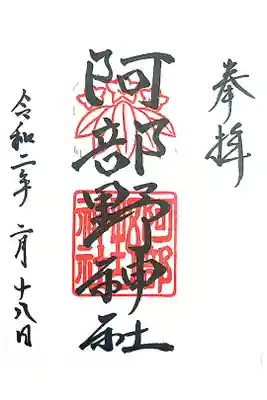 奉拝
阿部野神社
令和二年 二月 十八日